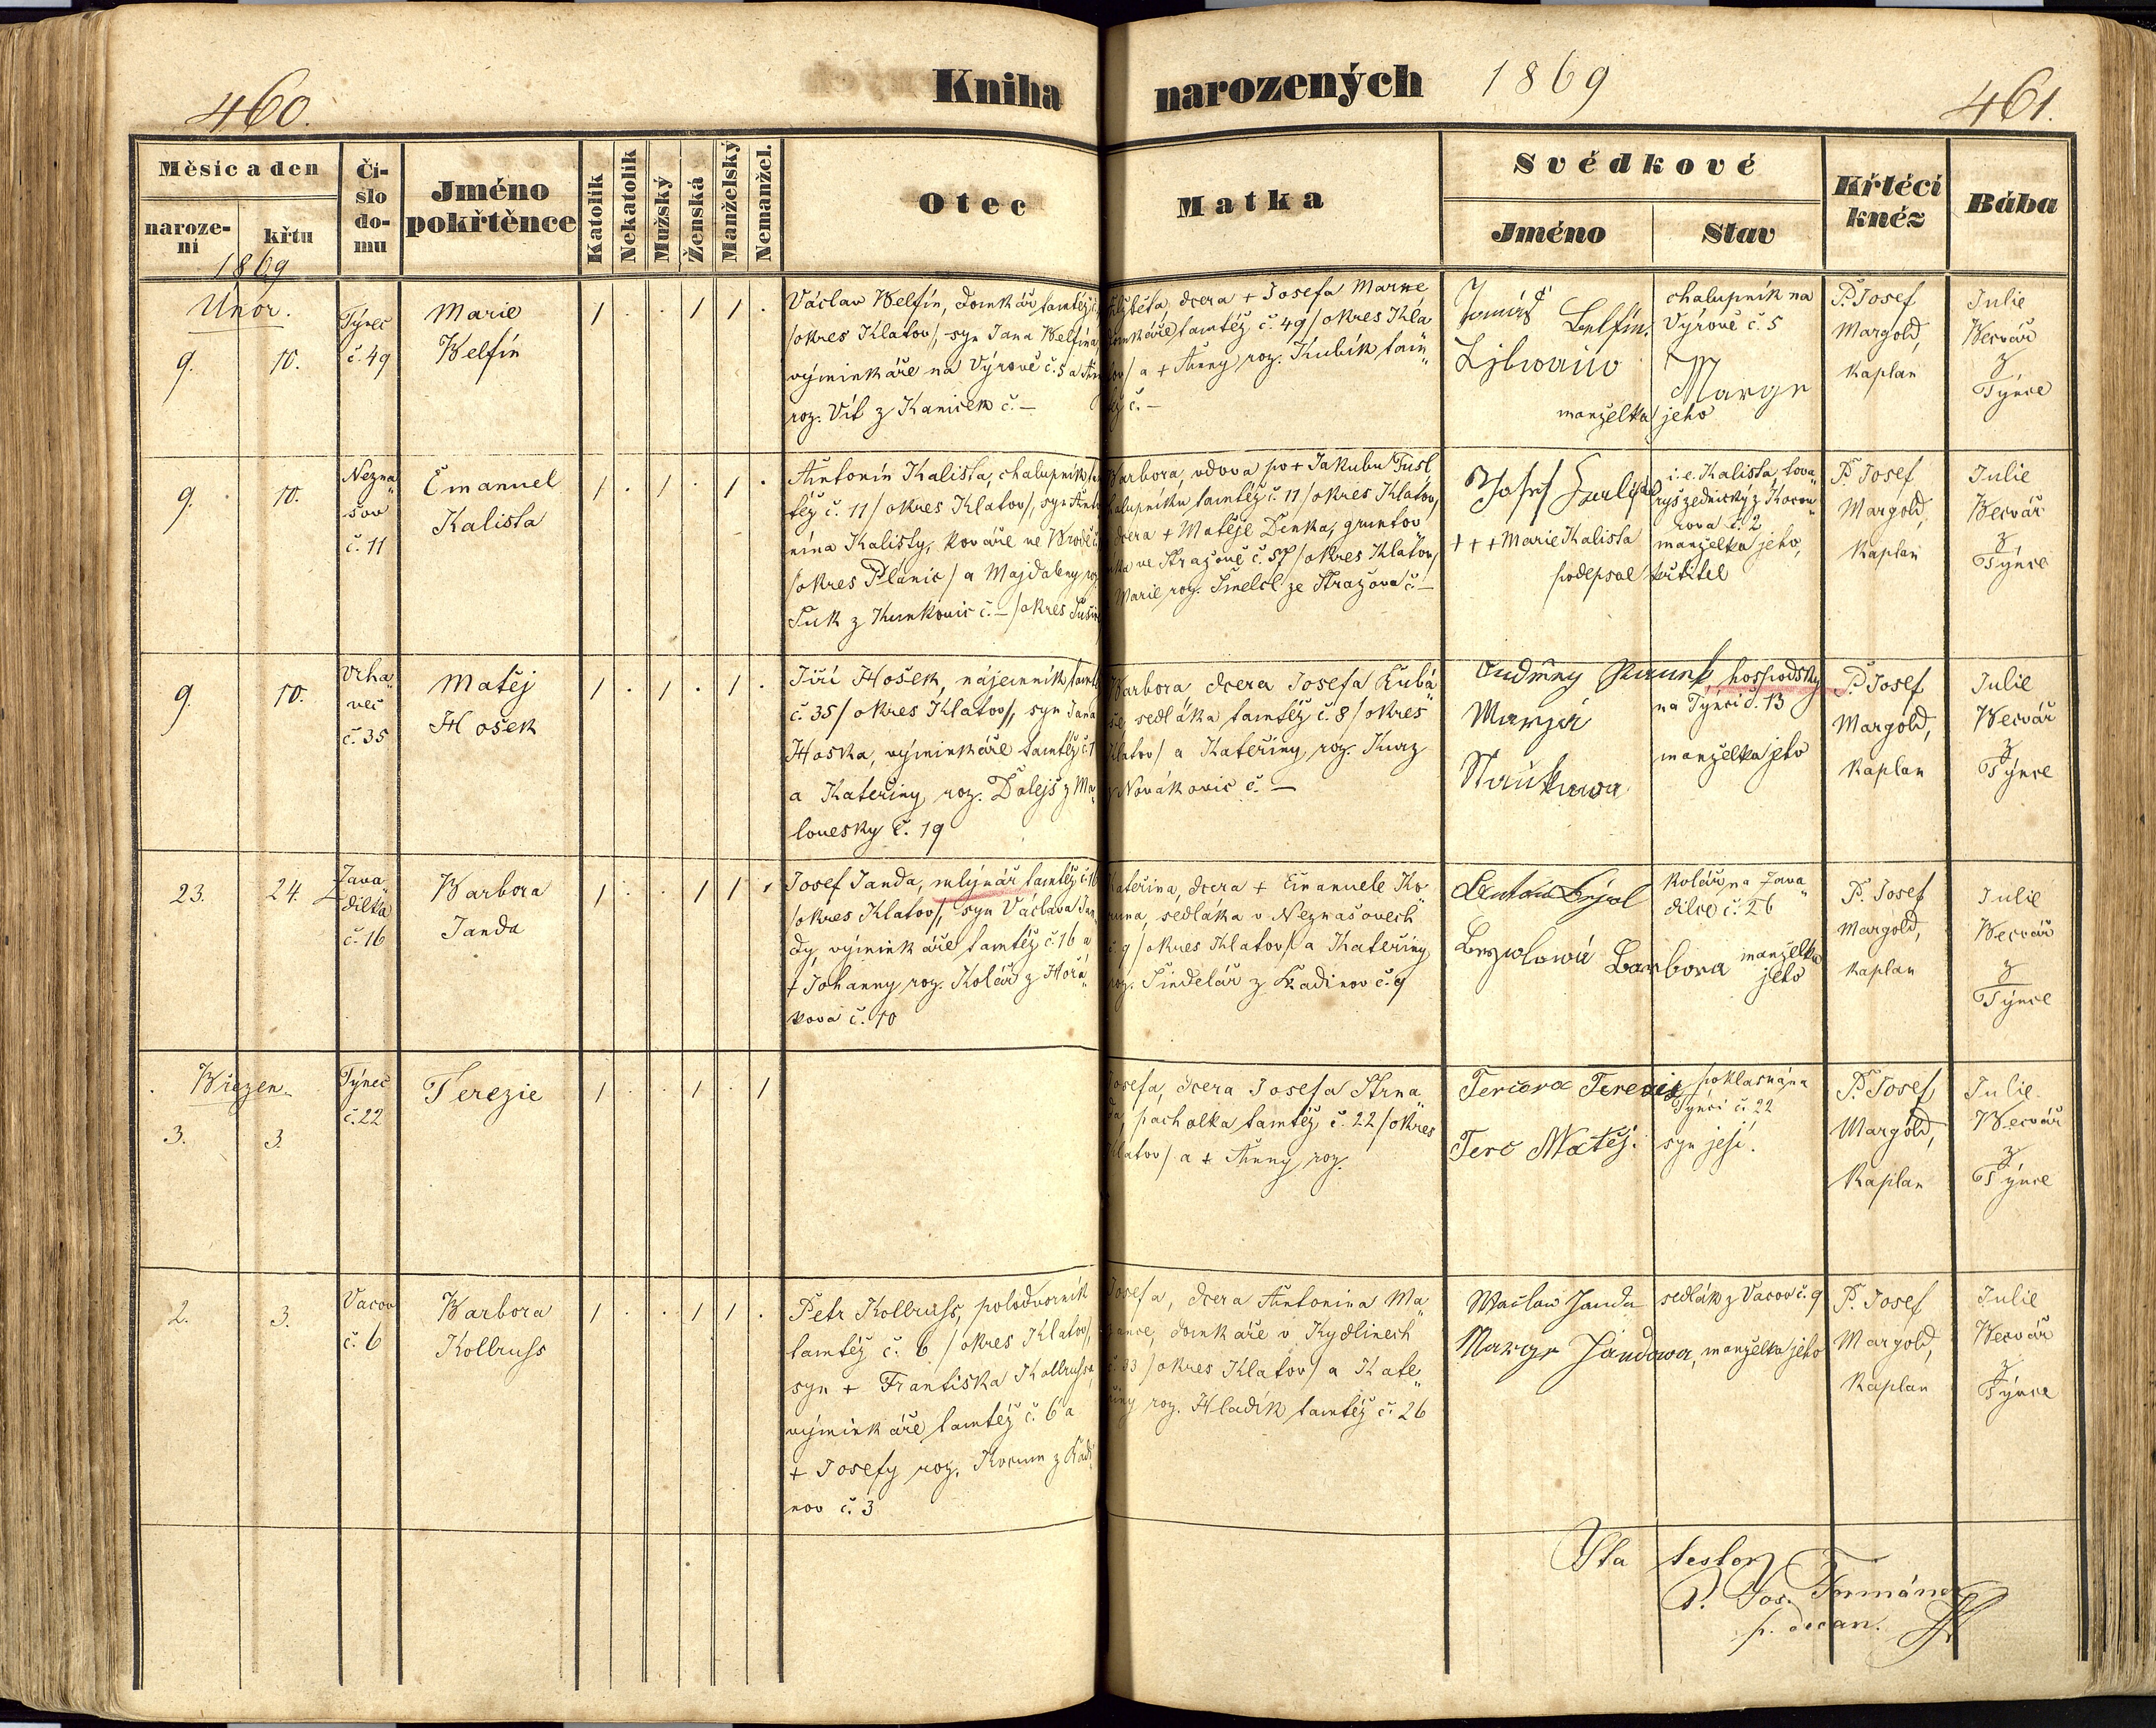 460.
Kniha
narozených 1869
461.
Měsíc a den
naroze-
ní
křtu
1869
Čí-
slo
do-
mu
Jméno
pokřtěnce
Katolík
Nekatolík
Mužský
Ženská
Manželský
Nemanžel.
Otec
Matka
Svědkové
Jméno
Stav
Křtěcí
kněz
Bába
Únor.
9. 10.
Týnec
č. 49
Marie
Welfín
1 . . 1 1 .
Václav Welfín, domkář tamtéž
/okres Klatov/, syn Jana Welfína,
výminkáře na Výrově č. 5 a
roz. Vít z Kaniček č. –
dcera + Josefa Marne
tamtéž č. 49 /okres Kla
a + Anny roz. Kubík tam„
č. –
Tomáš Belfín.
manželka jeho
chalupník na
Výrově č. 5
P. Josef
Margold,
Kaplan
Julie
Wecvář
z
Týnce
9. 10.
Nezna„
šov
č. 11
Emanuel
Kalista
1 . 1 . 1 .
Antonín Kalista, chalupník
též č. 11 /okres Klatov/, syn Anto
nína Kalisty, kováře ve
/okres Plánic/ a Majdaleny
Suk z Kunkovic č. – /okres
Barbora, vdova po + Jakubu
tamtéž č. 11 /okres Klatov/
dcera + Matěje Denka, gruntov
ve Stražově č. 57 /okres Klatov/
Marie roz. Šmelcl ze Stražova č –
Josef
+ + + Marie Kalista
podepsal učitel
i. e. Kalista, tova„
ryš zednický z
č. 2
manželka jeho,
P. Josef
Margold,
Kaplan
Julie
Wecvář
z
Týnce
9. 10.
Vrha„
več
č. 35
Matěj
Hošek
1 . 1 . 1 .
Jiří Hošek, nájemník
č. 35 /okres Klatov/, syn Jana
Hoška, výminkáře tamtéž
a Kateřiny, roz. Dolejš z Ma„
lovesky č. 19
Barbora dcera Josefa Kubá„
še, sedláka tamtéž č. 8 /okres
Klatov/ a Kateřiny, roz. Kurz
z Novákovic č. –
hospodský
na Týnci č. 13
manželka jeho
P. Josef
Margold,
Kaplan
Julie
Wecvář
z
Týnce
23. 24.
Zava„
dilka
č. 16
Warbora
Janda
1 . . 1 1 .
Josef Janda, mlynář tamtéž č. 16
/okres Klatov/, syn Václava Jan„
dy, výminkáře tamtéž č. 16 a
+ Johanny roz. Kolář z Hořá„
kova č. 10
Kateřina, dcera + Emanuele Ko„
runa, sedláka v Neznašovech
č. 9 /okres Klatov/ a Kateřiny
roz. Šindelář z Kadinov č. 9
Barbora manželka
jeho
kolář na Zava„
dilce č. 26
P. Josef
Margold,
Kaplan
Julie
Wecvář
z
Týnce
Březen.
3. 3.
Týnec
č. 22
Terezie
1 . . 1 . 1
Josefa, dcera Josefa Strna„
da, pacholka tamtéž č. 22 /okres
Klatov/ a + Anny roz.
Tercova Terezie
Terc Matěj.
Týnci č. 22
syn její.
P. Josef
Margold,
Kaplan
Julie
Wecvář
z
Týnce
2. 3.
Vacov
č. 6
Warbora
Kollruſs
1 . . 1 1 .
Petr Kollruſs, polodvorník
tamtéž č. 6 /okres Klatov/,
syn + Františka Kollruſsa,
výminkáře tamtéž č. 6 a
+ Josefy roz. Korum z Kadi
nov č. 3
Josefa, dcera Antonína Ma„
domkáře v Kydlinech
č. 33 /okres Klatov/ a Kate„
řiny roz. Hladík tamtéž č. 26
Waclaw Janda
Marye Jandowa, manželka jeho
sedlák z Vacov č. 9
P. Josef
Margold,
Kaplan
Julie
Wecvář
z
Týnce
Ita testor
P. Jos. Formánek
p. decan.